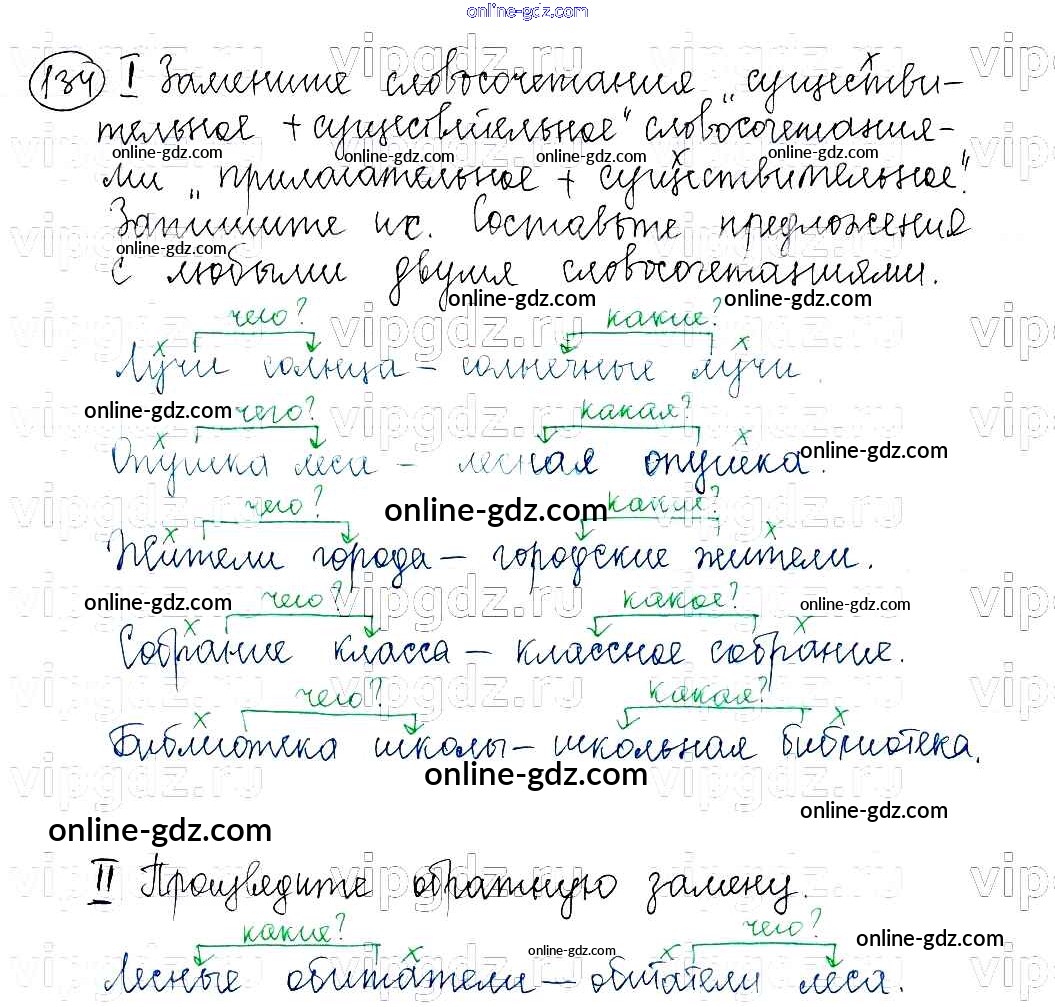 online-gdz.com
134 I Замените словосочетания „существи-
тельное + существительное" словосочетания-
ми „прилагательное + существительное".
Запишите их. Составьте предложения
с любыми двумя словосочетаниями.
чего? какие?
Лучи солнца – солнечные лучи.
чего? какая?
Опушка леса – лесная опушка.
чего? какие?
Жители города – городские жители.
чего? какое?
Собрание класса – классное собрание.
чего? какая?
Библиотека школы – школьная библиотека.
online-gdz.com
II Произведите обратную замену.
какие? чего?
Лесные обитатели – обитатели леса.